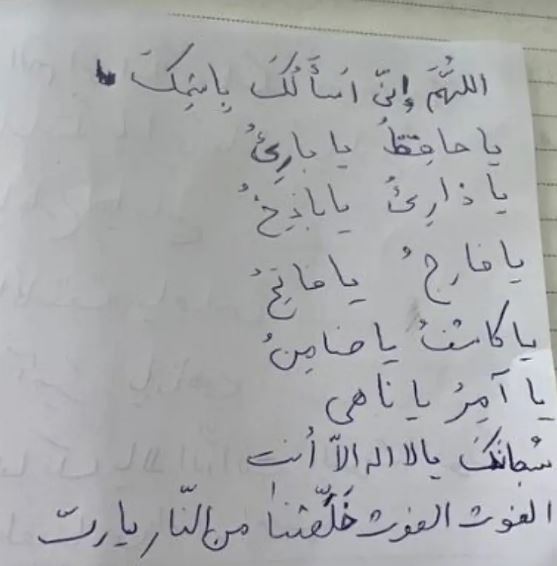 اللّهُمَّ إِنّي اَسأَلُكَ بِاسمِكَ
يا حافِظُ يا بارِئُ
يا ذارِئُ يا باذِخُ
يا فارِجُ يا فاتِحُ
يا كاشفُ يا ضامِنُ
يا آمِرُ يا ناهي
سُبحانَكَ يا لا اله الاّ أنت
الغوث الغوث خَلِّصْنا من النّار يا ربّ